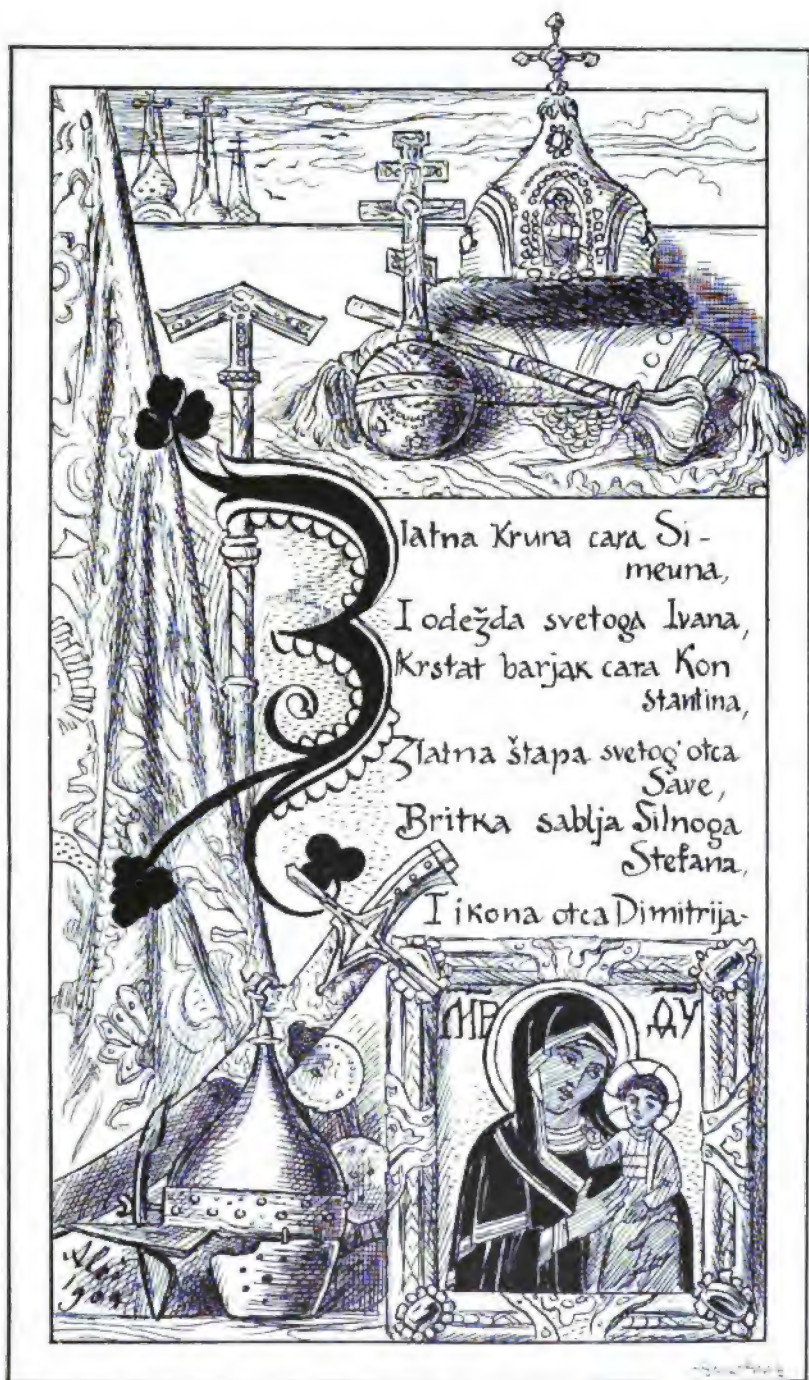 Zlatna Kruna cara Si-
meuna,
I odežda svetoga Ivana,
Krstat barjak cara Kon
stantina,
Zlatna štapa svetog' otca
Save,
Britka sablja Silnoga
Stefana,
I ikona otca Dimitrija-
МР ѲУ
Aleš